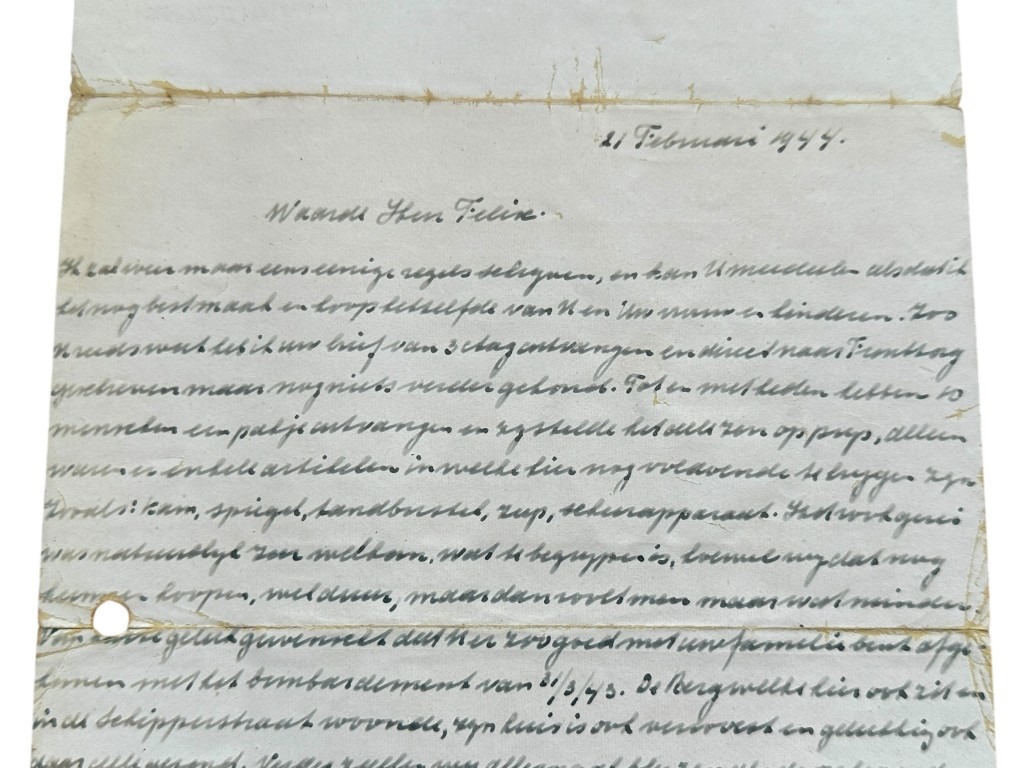 21 Februari 1944.
Waarde Heer Felix.
Ik zal weer maar eens eenige regels schrijven, en kan U mededeelen als dat ik
het nog best maak en hoop hetzelfde van U en Uw vrouw en kinderen. Zoo
U reeds weet heb ik uw brief van 3 dezer ontvangen en direct naar
geschreven maar nog niets verder gehoord. Tot en met heden hebben 10
menschen een pakje ontvangen en zij stelde het zeer op prijs, alleen
waren er enkele artikelen in welke hier nog voldoende te krijgen zijn
zooals: kam, spiegel, tandborstel, zeep, scheerapparaat. Het rookgerei
was natuurlijk zeer welkom, wat te begrijpen is, hoewel wij dat nog
kunnen koopen, wel duur, maar dan rookt men maar wat minder.
Van harte geluk gewenscht dat U er zoo goed met uw familie bent afge-
komen met het bombardement van 31/3/43. De Berg welke hier ook zit en
in de Schippersstraat woonde, zijn huis is ook verwoest en gelukkig ook